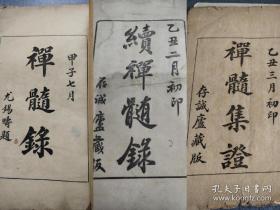 甲子七月
禪髓錄
乙丑二月初印
續禪髓錄
存誠廬藏版
乙丑三月初印
禪髓集證
存誠廬藏版